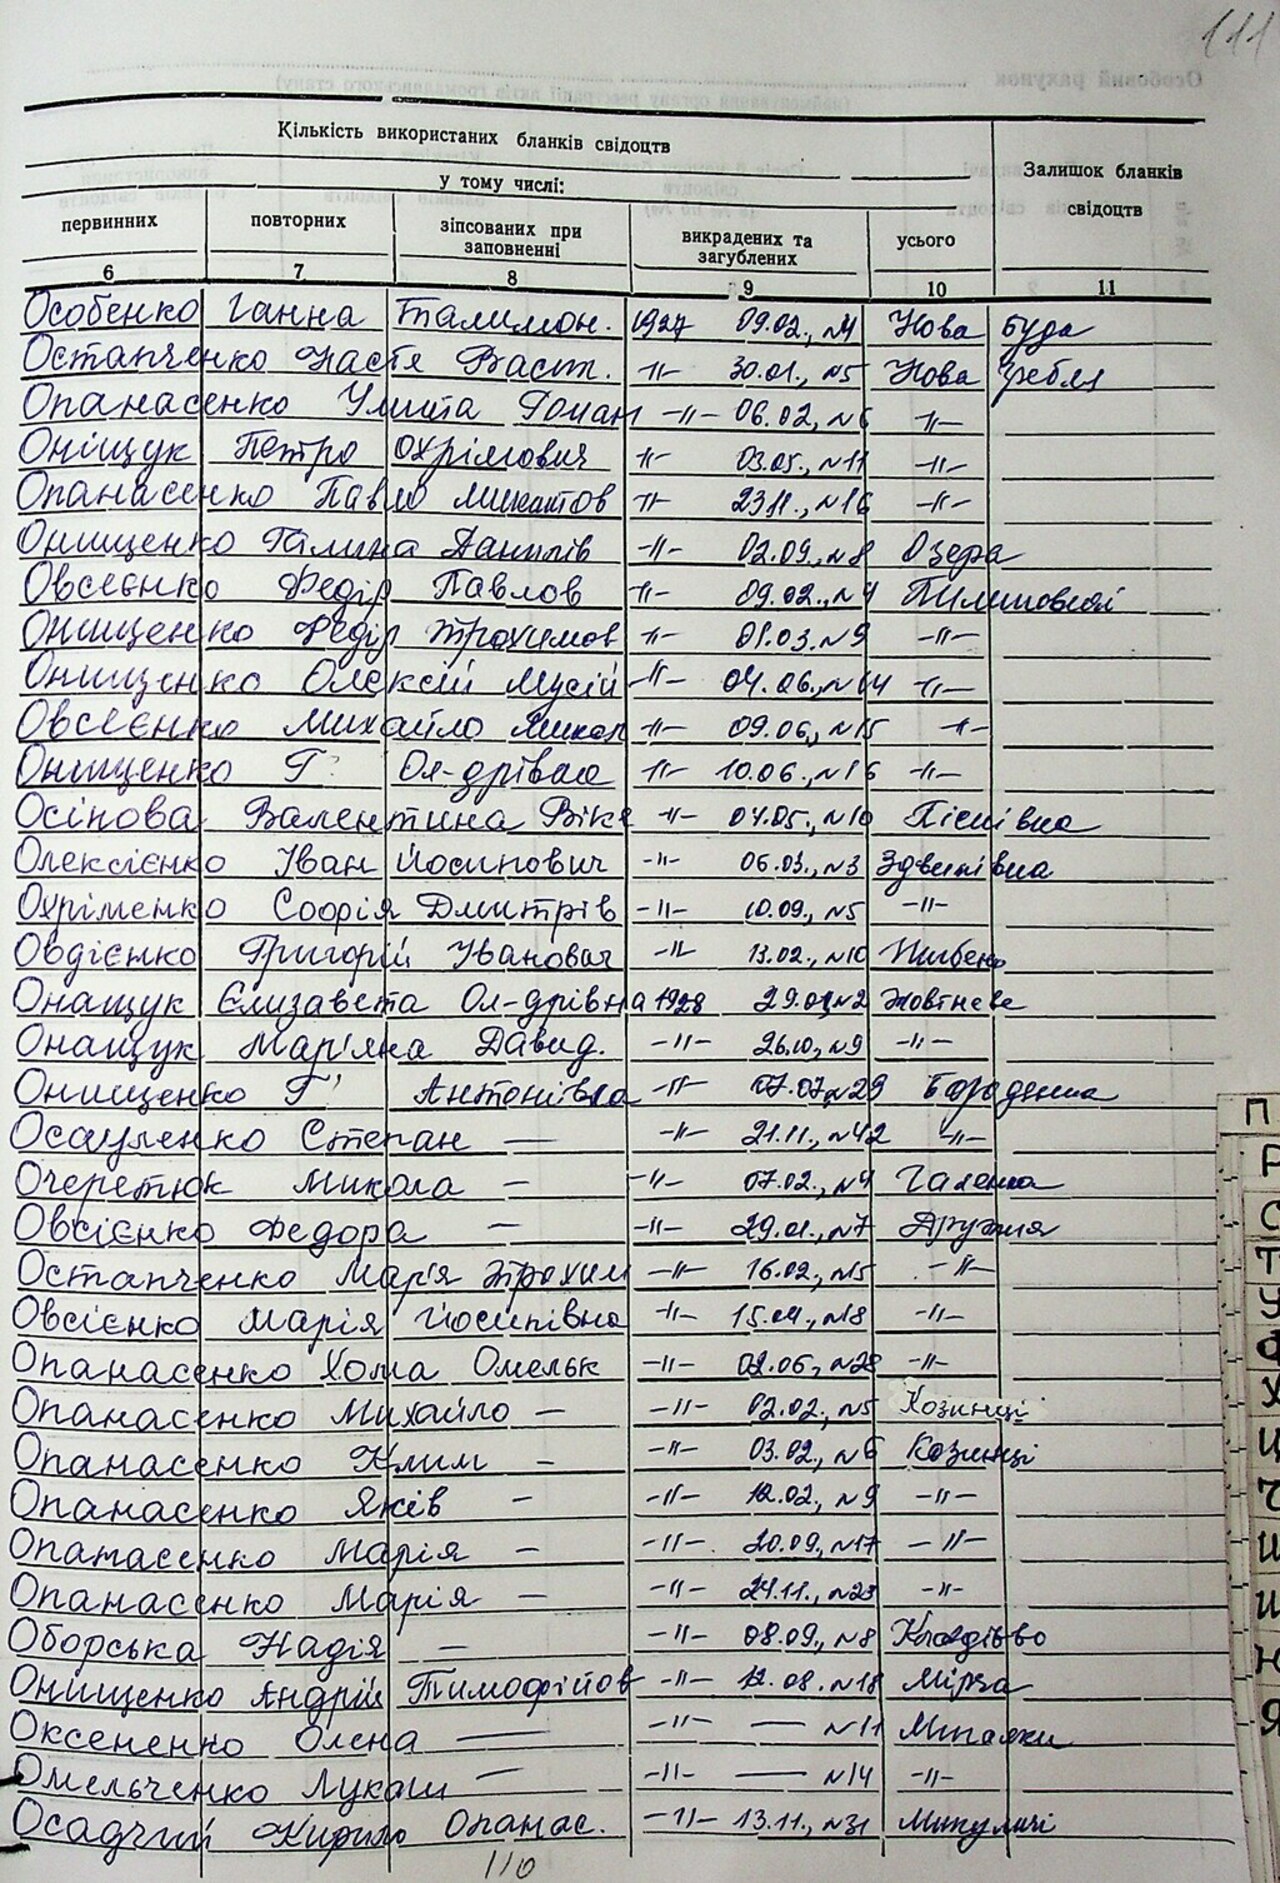 111
Кількість використаних бланків свідоцтв
Залишок бланків свідоцтв
у тому числі:
первинних повторних зіпсованих при заповненні викрадених та загублених усього
6 7 8 9 10 11
Особенко Ганна Талимон. 1927 09.02., №4 Нова Буда
Остапченко Настя Васт. -"- 30.01., №5 Нова Гребля
Опанасенко Улита Роман -"- 06.02, №6 -"-
Оніщук Петро Охрімович -"- 03.05., №11 -"-
Опанасенко Павло -"- 23.11., №16 -"-
Онищенко Галина Данилів -"- 02.09., №8 Озера
Овсеєнко Федір Павлов -"- 09.02., №4
Онищенко Федір Трохимов -"- 01.03. №9 -"-
Онищенко Олексій Мусій -"- 04.06., №14 -"-
Овсеєнко Михайло Микол -"- 09.06., №15 -"-
Онищенко Г. Ол-дрівна -"- 10.06., №16 -"-
Осіпова Валентина Вікт -"- 04.05., №10 Пісківка
Олексієнко Іван Йосипович -"- 06.03., №3 Здвижівка
Охріменко Софія Дмитрів -"- 10.09., №5 -"-
Овдієнко Григорій Іванович -"- 13.02., №10 Шибене
Онащук Єлизавета Ол-дрівна 1928 29.01, №2 Жовтневе
Онащук Мар'яна Давид. -"- 26.10., №9 -"-
Онищенко Г' Антонівна -"- 07.07, №29 Бородянка
Осауленко Степан — -"- 21.11., №42 -"-
Очеретюк Микола — -"- 07.02., №4 Галенка
Овсієнко Федора — -"- 29.01., №7 Дружня
Остапченко Мар'я Трохим -"- 16.02., №15 -"-
Овсієнко Марія Йосипівна -"- 15.04., №18 -"-
Опанасенко Хома Омельк -"- 02.06., №28 -"-
Опанасенко Михайло — -"- 02.02., №5 Козинці
Опанасенко Клим — -"- 03.02., №6 Козинці
Опанасенко Яків — -"- 12.02., №9 -"-
Опанасенко Марія — -"- 20.09., №17 -"-
Опанасенко Марія — -"- 24.11., №23 -"-
Оборська Надія — -"- 08.09., №8 Клавдієво
Онищенко Андрій Тимофійов -"- 12.08. №18 Мірча
Оксененко Олена — -"- — №11 Мигалки
Омельченко Лукаш — -"- — №14 -"-
Осадчий Кирило Опанас. -"- 13.11., №31 Микуличі
110
П
Р
С
Т
У
Ф
Х
Ц
Ч
Ш
Я